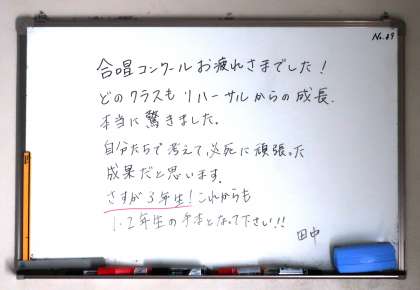 No.49
合唱コンクールお疲れさまでした!
どのクラスもリハーサルからの成長、
本当に驚きました。
自分たちで考えて、必死に頑張った
成果だと思います。
さすが3年生!これからも
1.2年生の手本となって下さい!!
田中